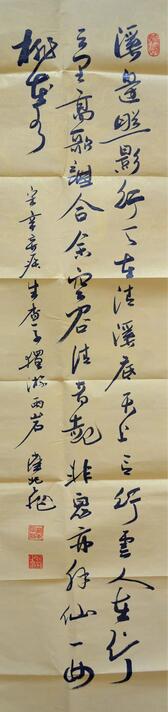 溪邊照影行天在清溪底天上有行雲人在行
云里高歌誰合余空谷清音起非鬼亦非仙一曲
桃花水
宋辛棄疾生查子獨游雨岩